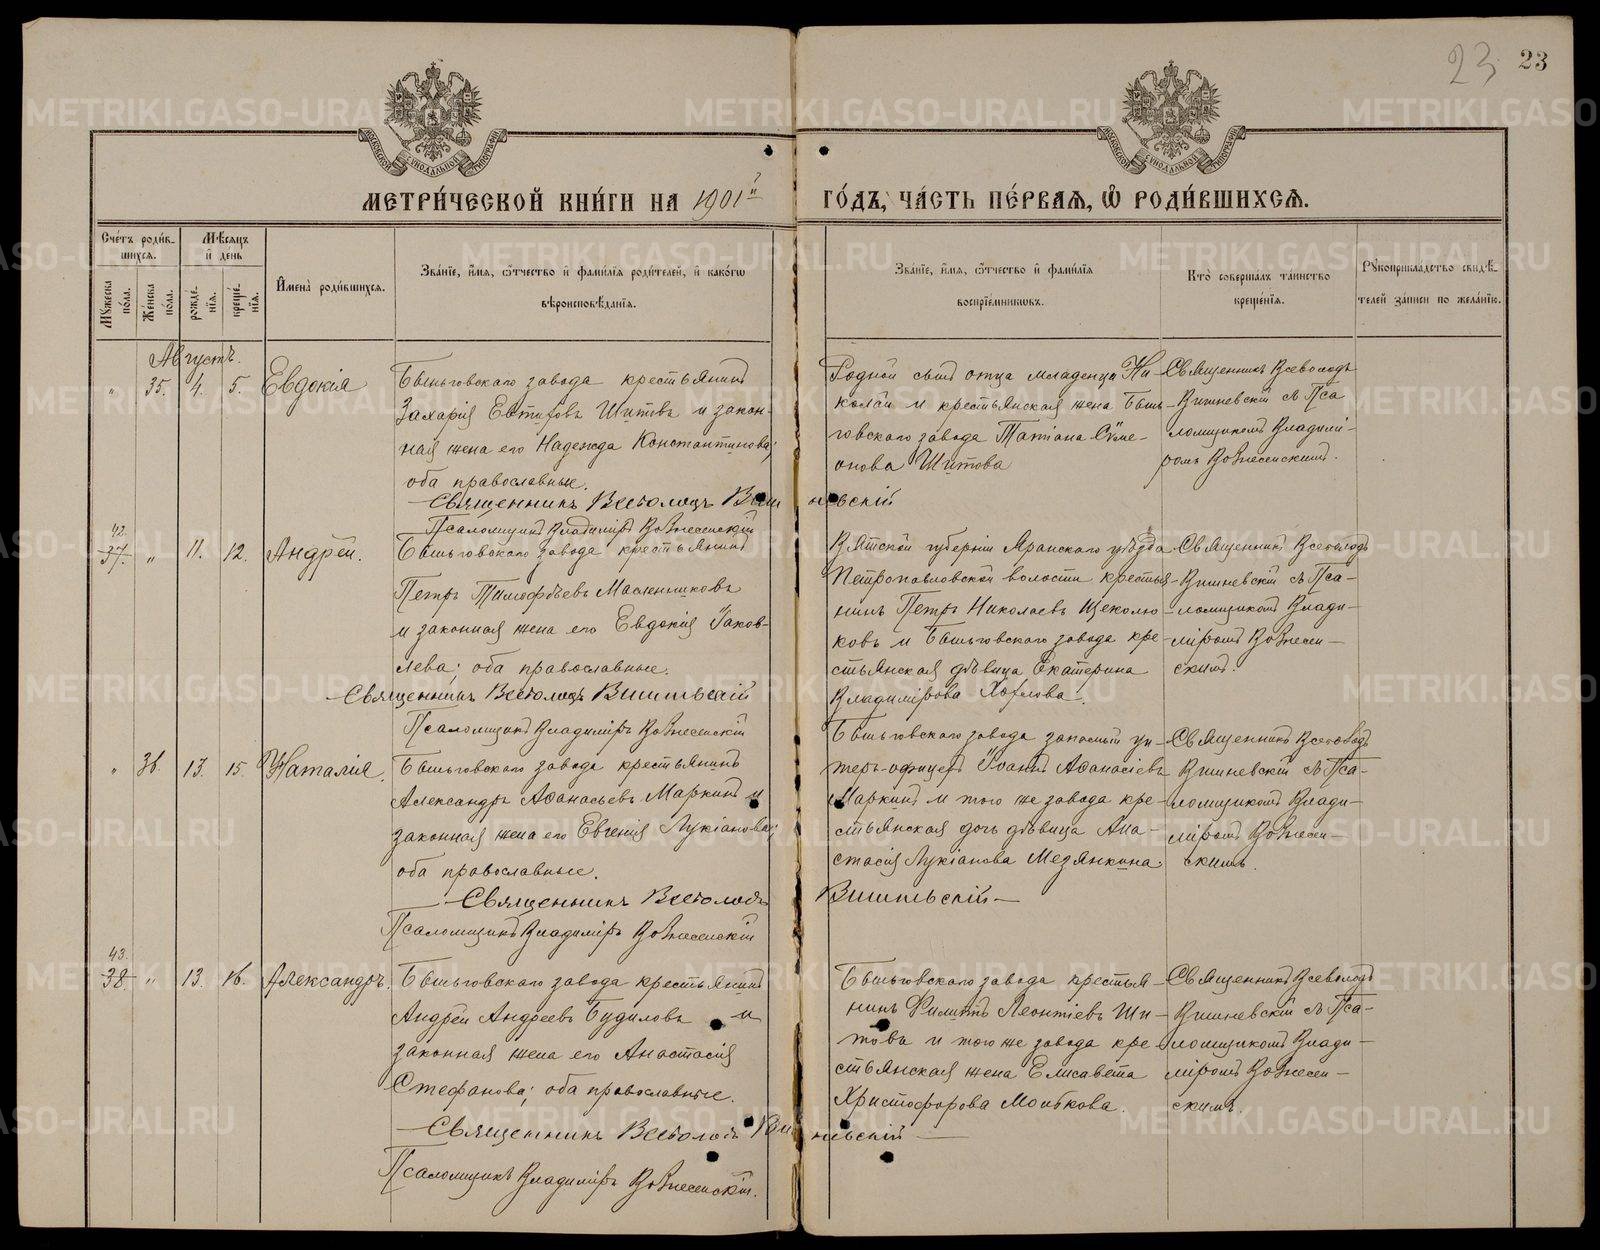 23 23
МЕТРИ́ЧЕСКОЙ КНИ́ГИ НА 1901й ГО́ДЪ, ЧА́СТЬ ПЕ́РВАѦ, Ѽ РОДИ́ВШИХСѦ.
Сче́тъ роди́вшихся.
Мѣ́сяцъ и де́нь
Му́жеска по́ла.
Же́нска по́ла.
рожде́нїя.
креще́нїя.
Имена̀ роди́вшихся.
Зва́нїе, и́мя, о́тчество и фами́лїя роди́телей, и како́гѡ
вѣроисповѣ́данїя.
Зва́нїе, и́мя, о́тчество и фами́лїя
воспрїе́мниковъ.
Кто̀ соверша́лъ та́инство
креще́нїя.
Рукоприкла́дство свидѣ́-
телей за́писи по жела́нїю.
Августъ.
" 35. 4. 5. Евдокія
Быньговскаго завода крестьянинъ
Захарія Евтиховъ Шитовъ и закон-
ная жена его Надежда Константинова;
оба православные.
Священникъ Всеволодъ Вишневскій
Псаломщикъ Владиміръ Вознесенскій
Родной сынъ отца младенца Ни-
колай и крестьянская жена Бынь-
говскаго завода Татіана Симе-
онова Шитова
Священникъ Всеволодъ
Вишневскій съ Пса
ломщикомъ Владимі-
ромъ Вознесенскимъ.
42.
37. " 11. 12. Андрей.
Быньговскаго завода крестьянинъ
Петръ Тимофѣевъ Масленниковъ
и законная жена его Евдокія Іаков-
лева; оба православные.
Священникъ Всеволодъ Вишневскій
Псаломщикъ Владиміръ Вознесенскій
Вятской губерніи Яранскаго уѣзда
Петропавловской волости крестья-
нинъ Петръ Николаевъ Щеколю-
ковъ и Быньговскаго завода кре-
стьянская дѣвица Екатерина
Владимірова Хорлова.
Священникъ Всеволодъ
Вишневскій съ Пса-
ломщикомъ Влади-
міромъ Вознесен-
скимъ.
" 36. 13. 15. Наталія.
Быньговскаго завода крестьянинъ
Александръ Аѳанасьевъ Маркинъ и
законная жена его Евгенія Лукіанова;
оба православные.
Священникъ Всеволодъ Вишневскій
Псаломщикъ Владиміръ Вознесенскій
Быньговскаго завода запасный ун-
теръ-офицеръ Іоаннъ Аѳанасіевъ
Маркинъ и того же завода кре-
стьянская дочь дѣвица Ана-
стасія Лукіанова Медянкина
Священникъ Всеволодъ
Вишневскій съ Пса-
ломщикомъ Влади-
міромъ Вознесен-
скимъ.
43.
38. " 13. 16. Александръ.
Быньговскаго завода крестьянинъ
Андрей Андреевъ Будиловъ и
законная жена его Анастасія
Стефанова; оба православные.
Священникъ Всеволодъ Вишневскій
Псаломщикъ Владиміръ Вознесенскій.
Быньговскаго завода крестья-
нинъ Филиппъ Леонтіевъ Ши-
товъ и того же завода кре-
стьянская жена Елисавета
Христофорова
Священникъ Всеволодъ
Вишневскій съ Пса-
ломщикомъ Влади-
міромъ Вознесен-
скимъ.
METRIKI.GASO-URAL.RU